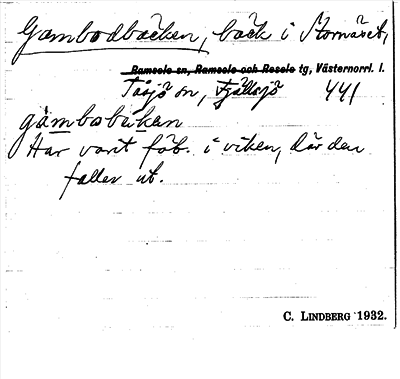 Gambodbäcken, bäck i Stornäset,
Ramsele sn, Ramsele och Resele tg, Västernorrl. l.
Tåsjö sn, Fjällsjö 441
gämbobäken
Har varit fäb. i viken, där den
faller ut.
C. LINDBERG 1932.